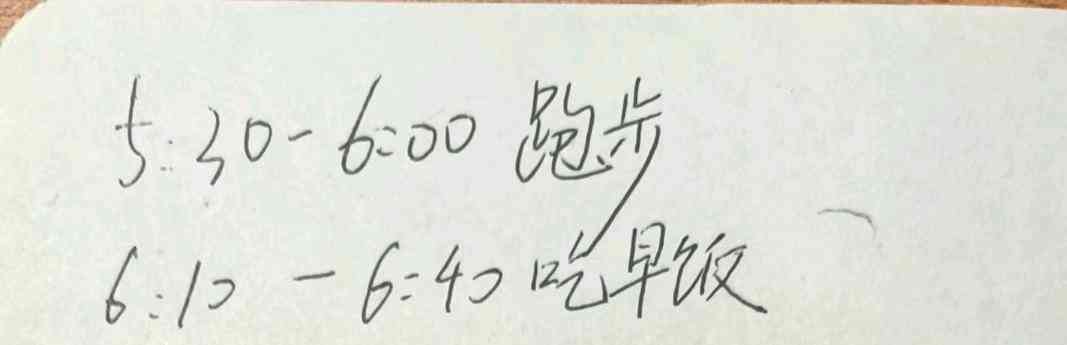 5:30-6:00 跑步
6:10-6:40 吃早饭